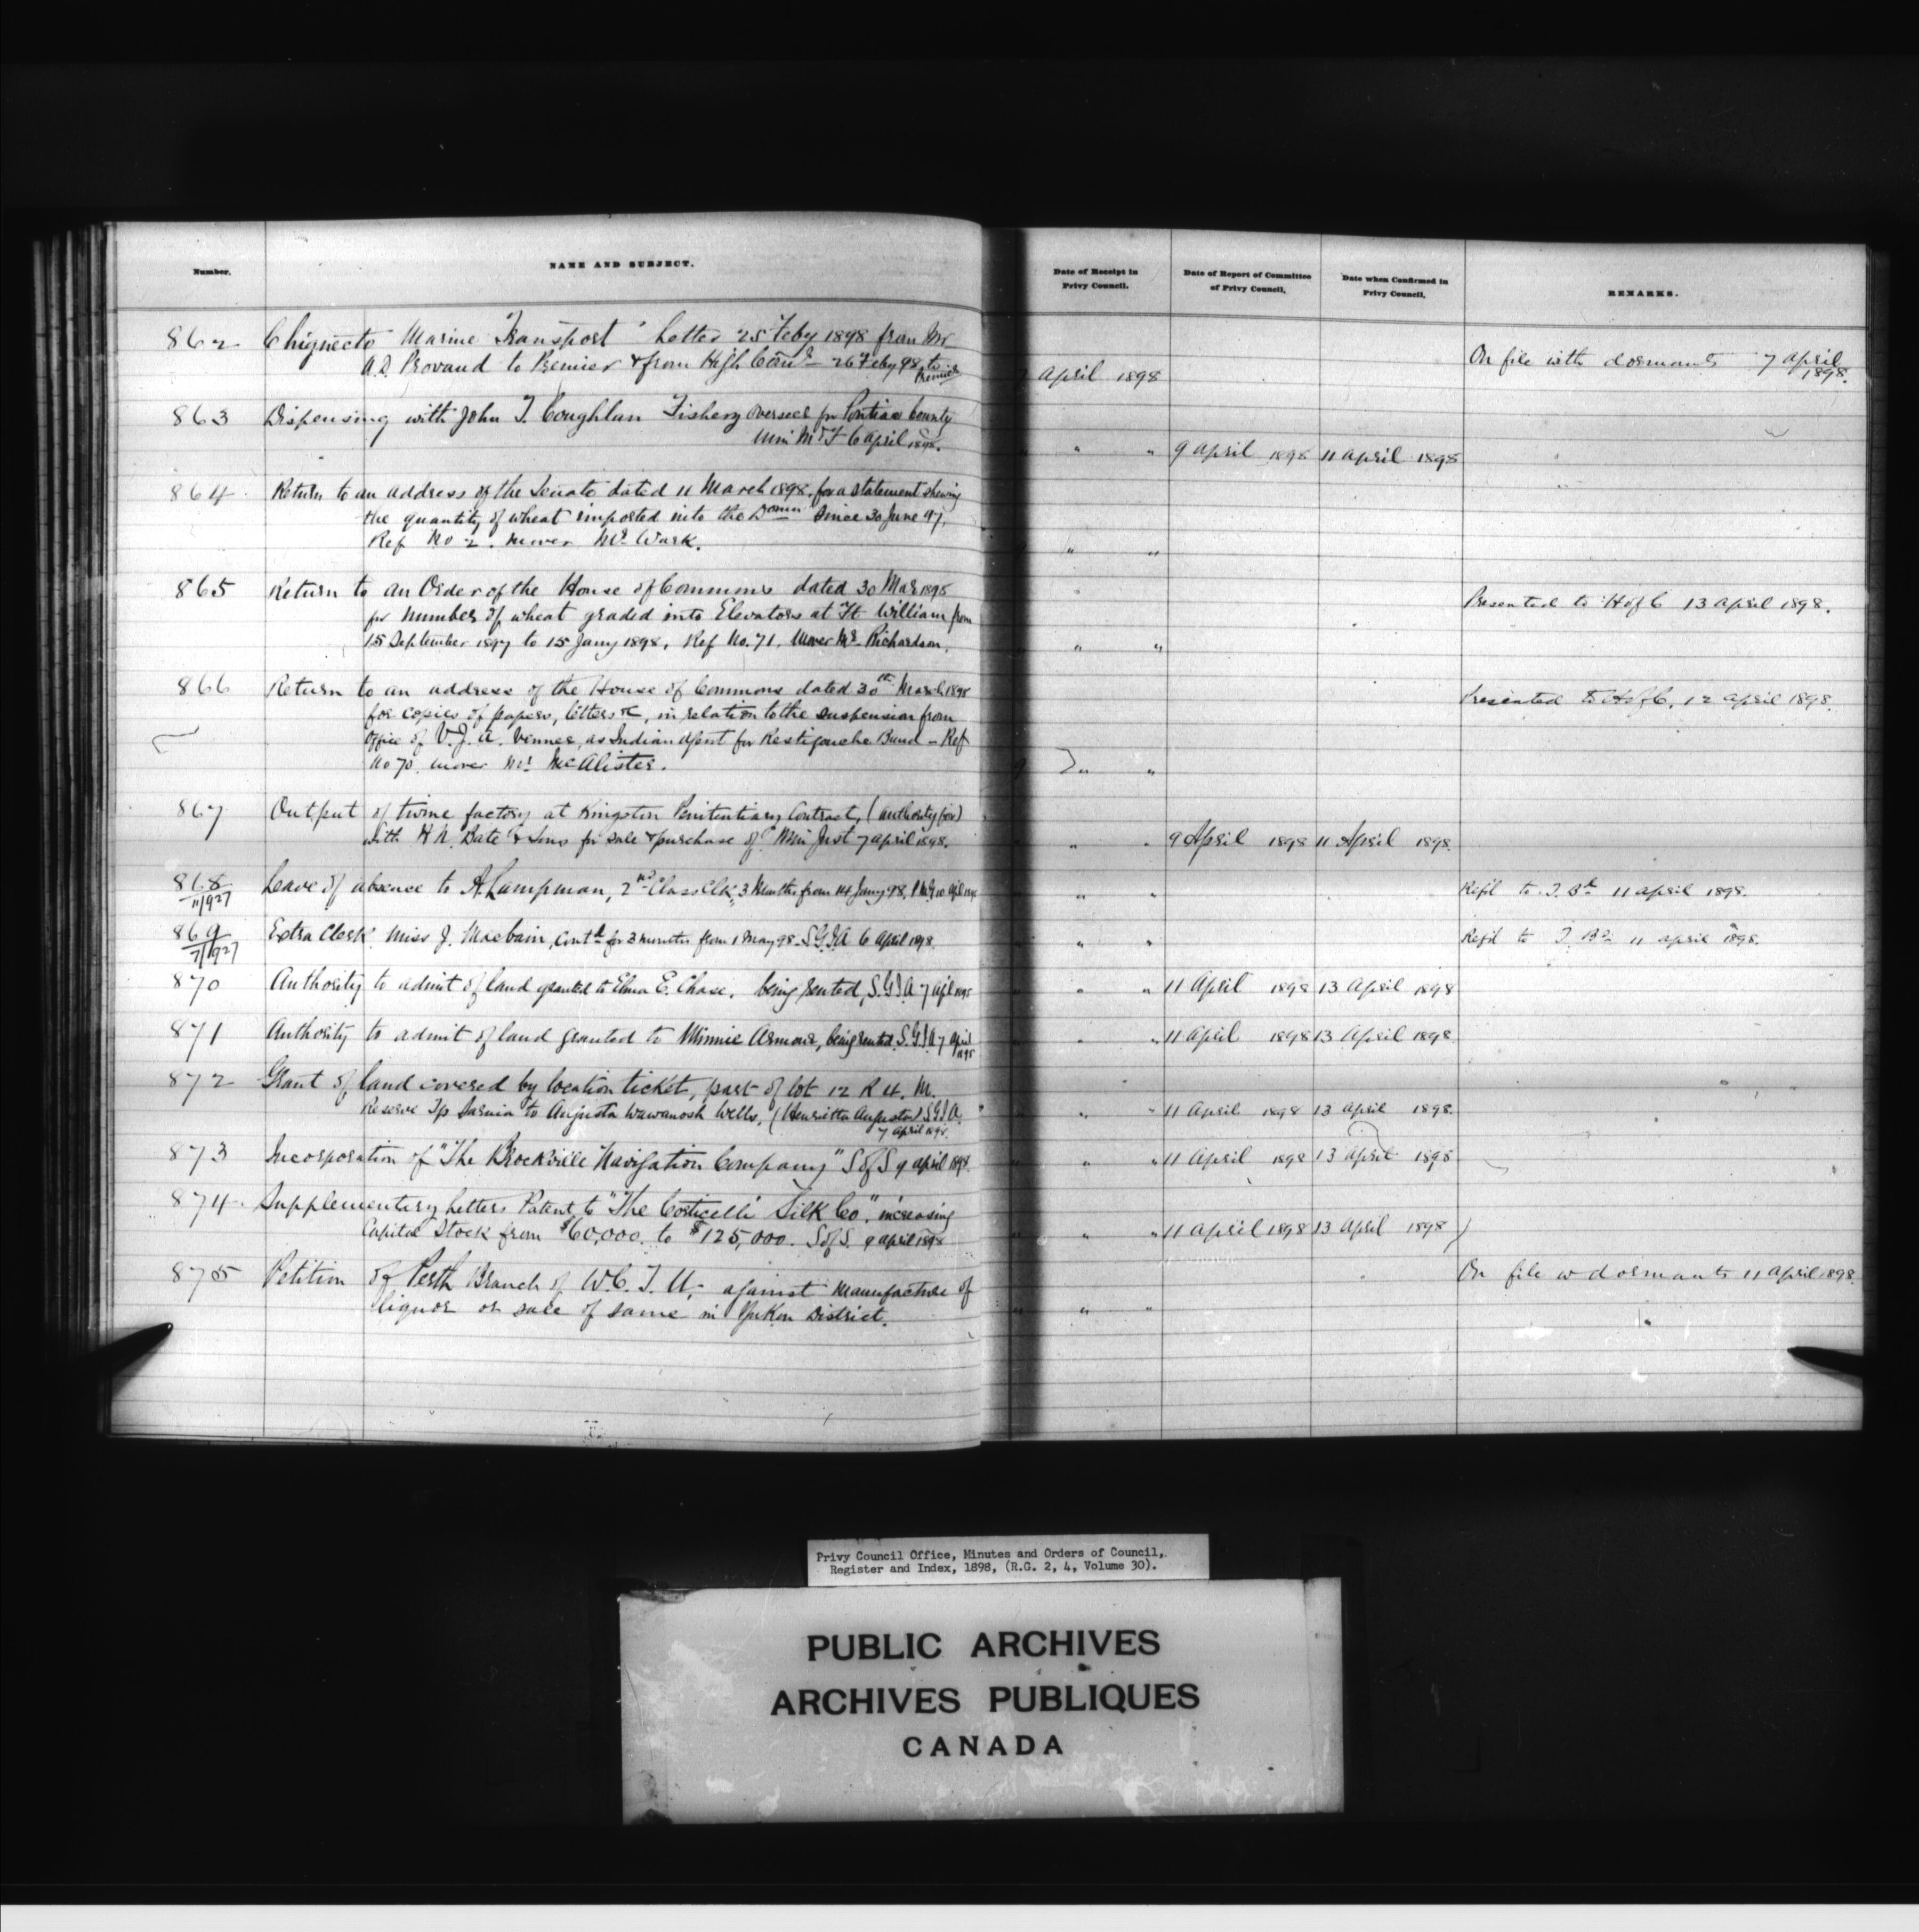 Number.
NAME AND SUBJECT.
Date of Receipt in
Privy Council.
Date of Report of Committee
of Privy Council.
Date when Confirmed in
Privy Council.
REMARKS.
862 Chignecto Marine Transport Letter 25 Feby 1898 from Mr
A.D. Provand to Premier & from High Comr 26 Feby 98 to
Premier
April 1898
On file with dormants 7 April
1898.
863 Dispensing with John T. Coughlan Fishery Overseer for Pontiac County
Min M & F 6 April 1898.
" " 9 April 1898 11 April 1898
864 Return to an address of the Senate dated 11 March 1898, for a statement shewing
the quantity of wheat imported into the Domn since 30 June 97.
Ref No 2. mover Mr Wark.
" "
865 Return to an Order of the House of Commons dated 30 Mar 1898
for number of wheat graded into Elevators at Ft William from
15 September 1897 to 15 Jany 1898. Ref No. 71. Mover Mr Richardson.
" "
Presented to H of C 13 April 1898.
866 Return to an address of the House of Commons dated 30th March 1898
for copies of papers, letters &c, in relation to the suspension from
office of V.J.A. Venner, as Indian Agent for Restigouche Band - Ref
No 70. mover Mr McAlister.
" "
Presented to H of C. 12 April 1898.
867 Output of twine factory at Kingston Penitentiary Contract, (authority for)
with H N. Bate & Sons for sale & purchase of Min Just 7 April 1898.
" " 9 April 1898 11 April 1898.
868
11/927
Leave of absence to A. Lampman, 2nd Class Clk, 3 Months from 14 Jany 98.
" "
Refd to T. Bd 11 April 1898.
869
7/927
Extra Clerk Miss J. Macbain, Contd for 3 months from 1 May 98 - S.G.I.A 6 April 1898.
" "
Refd to T. Bd 11 April 1898.
870 Authority to admit of land granted to Elma E. Chase, being rented, S.G.I.A 7 Apl 1898
" " 11 April 1898 13 April 1898
871 Authority to admit of land granted to Minnie Armour, being rented S.G.I.A 7 April
1898
" " 11 April 1898 13 April 1898
872 Grant of land covered by location ticket, part of lot 12 R 4. M.
Reserve Tp Sarnia to Augusta Wawanosh Wells, (Henrietta Augusta) S.G.I.A.
7 April 1898.
" " 11 April 1898 13 April 1898.
873 Incorporation of "The Brockville Navigation Company" S of S 9 April 1898
" " 11 April 1898 13 April 1898
874 Supplementary Letters Patent to "The Corticelli Silk Co", increasing
Capital Stock from $60,000. to $125,000. S of S. 9 April 1898
" " 11 April 1898 13 April 1898
875 Petition of Perth Branch of W.C.T.U. against manufacture of
liquor or sale of same in Yukon District.
" "
On file w dormants 11 April 1898.
Privy Council Office, Minutes and Orders of Council,
Register and Index, 1898, (R.G. 2, 4, Volume 30).
PUBLIC ARCHIVES
ARCHIVES PUBLIQUES
CANADA